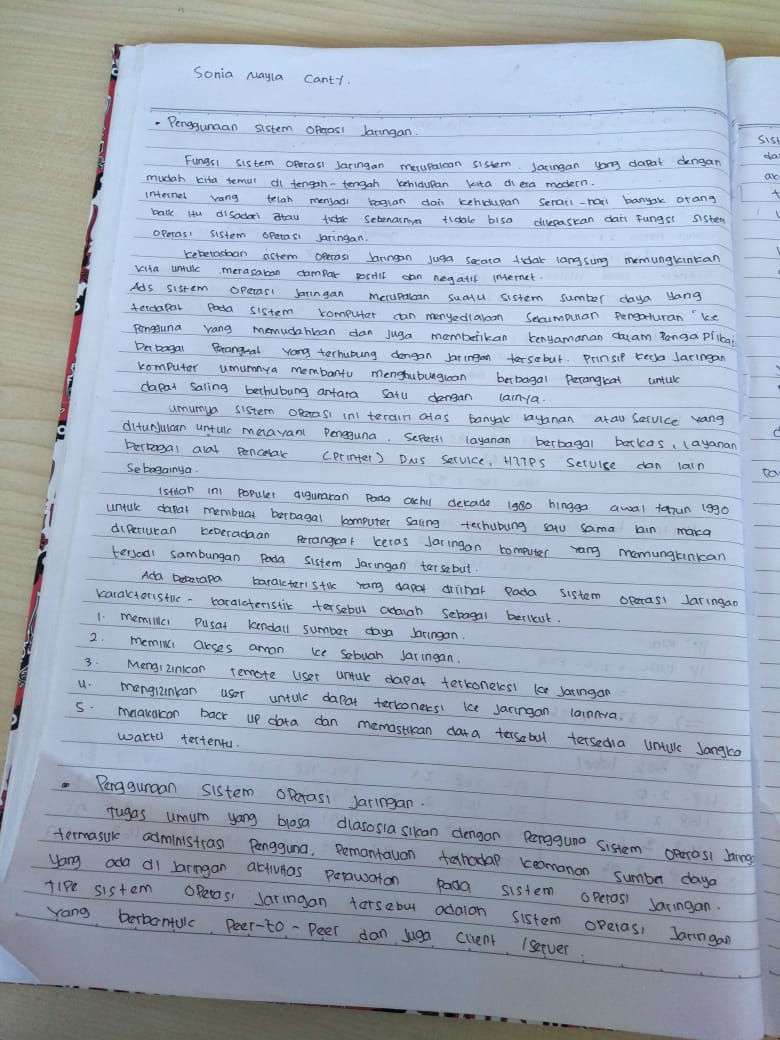 Sonia Nayla Canty.
• Penggunaan sistem operasi Jaringan.
Fungsi sistem operasi Jaringan merupakan sistem Jaringan yang dapat dengan
mudah kita temui di tengah-tengah kehidupan kita di era modern.
internet yang telah menjadi bagian dari kehidupan senari-hari banyak orang
baik itu disadari atau tidak sebenarnya tidak bisa dilepaskan dari fungsi sistem
operasi sistem operasi Jaringan.
keberadaan sistem operasi Jaringan juga secara tidak langsung memungkinkan
kita untuk merasakan dampak positif dan negatif internet.
Ads sistem operasi Jaringan merupakan suatu sistem sumber daya yang
terdapat pada sistem komputer dan menyediakan sekumpulan pengaturan ke
pengguna yang memudahkan dan juga memberikan kenyamanan dalam
berbagai perangkat yang terhubung dengan jaringan tersebut. Prinsip kerja Jaringan
komputer umumnya membantu menghubungkan berbagai perangkat untuk
dapat saling berhubung antara satu dengan lainya.
umumya sistem operasi ini terdiri atas banyak layanan atau service yang
ditunjukan untuk melayani pengguna. seperti layanan berbagai berkas, layanan
berbagai alat pencetak (printer) DNS service, HTTPS service dan lain
sebagainya.
istilah ini populer digunakan pada akhir dekade 1980 hingga awal tahun 1990
untuk dapat membuat berbagai komputer saling terhubung satu sama lain maka
diperlukan keberadaan perangkat keras Jaringan komputer yang memungkinkan
terjadi sambungan pada sistem jaringan tersebut.
Ada beberapa karakteristik yang dapat dilihat pada sistem operasi Jaringan
karakteristik-karakteristik tersebut adalah sebagai berikut.
1. memiliki pusat kendali sumber daya Jaringan.
2. memiliki akses aman ke sebuah Jaringan.
3. Mengizinkan remote user untuk dapat terkoneksi ke Jaringan
4. mengizinkan user untuk dapat terkoneksi ke jaringan lainnya.
5. melakukan back up data dan memastikan data tersebut tersedia untuk jangka
waktu tertentu.
• Penggunaan sistem operasi Jaringan.
Tugas umum yang biasa diasosiasikan dengan pengguna sistem operasi Jaring
termasuk administrasi pengguna, pemantauan terhadap keamanan sumber daya
yang ada di Jaringan aktivitas perawatan pada sistem operasi Jaringan.
Tipe sistem operasi Jaringan tersebut adalah sistem operasi Jaringan
yang berbentuk peer-to-peer dan juga client /server.